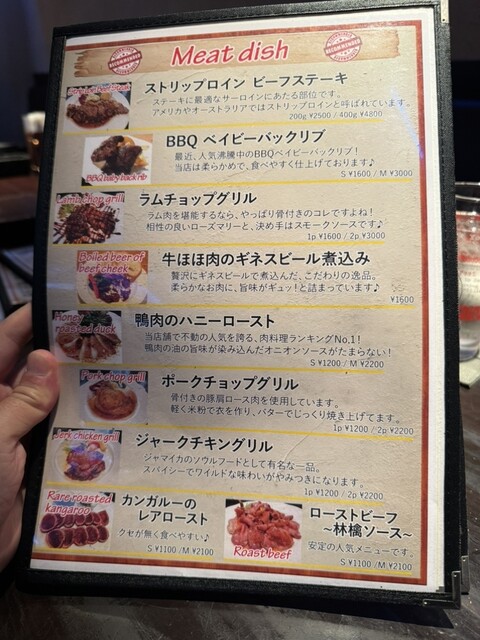 RECOMMENDED
Meat dish
RECOMMENDED
ストリップロイン ビーフステーキ
ステーキに最適なサーロインにあたる部位です。
アメリカやオーストラリアではストリップロインと呼ばれています。
200g ¥2500 / 400g ¥4800
BBQ baby back rib
BBQ ベイビーバックリブ
最近、人気沸騰中のBBQベイビーバックリブ!
当店は柔らかめで、食べやすく仕上げております♪
S ¥1600 / M ¥3000
Lamb chop grill
ラムチョップグリル
ラム肉を堪能するなら、やっぱり骨付きのコレですよね!
相性の良いローズマリーと、決め手はスモークソースです♪
1p.¥1600 / 2p.¥3000
Boiled beer of
beef cheek
牛ほほ肉のギネスビール煮込み
贅沢にギネスビールで煮込んだ、こだわりの逸品。
柔らかなお肉に、旨味がギュッ!と詰まっています♪
¥1600
Honey
roasted duck
鴨肉のハニーロースト
当店舗で不動の人気を誇る、肉料理ランキングNo.1!
鴨肉の油の旨味が染み込んだオニオンソースがたまらない!
S ¥1200 / M ¥2200
Pork chop grill
ポークチョップグリル
骨付きの豚肩ロース肉を使用しています。
軽く米粉で衣を作り、バターでじっくり焼き上げてます。
1p ¥1200 / 2p ¥2200
Jerk chicken grill
ジャークチキングリル
ジャマイカのソウルフードとして有名な一品。
スパイシーでワイルドな味わいがやみつきになります。
1p ¥1200 / 2p ¥2200
Rare roasted
kangaroo
カンガルーの
レアロースト
クセが無く食べやすい♪
S ¥1100 / M ¥2100
Roast beef
ローストビーフ
~林檎ソース~
安定の人気メニューです。
S ¥1100 / M ¥2100